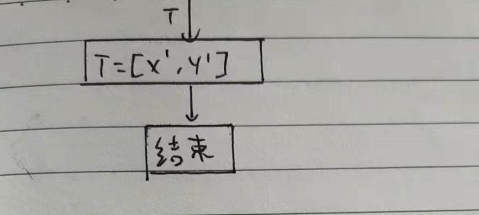 T
T=[x',y']
结束